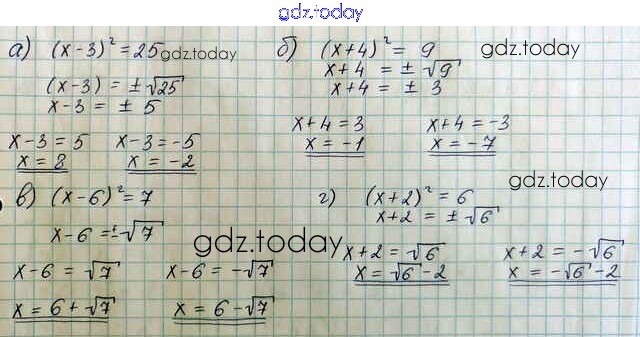 gdz.today
а) (x-3)² = 25 gdz.today
(x-3) = ±√25
x-3 = ± 5
x-3 = 5 x-3 = -5
x = 8 x = -2
б) (x+4)² = 9 gdz.today
x+4 = ± √9
x+4 = ± 3
x+4 = 3 x+4 = -3
x = -1 x = -7
в) (x-6)² = 7
x-6 = ±√7
gdz.today
x-6 = √7 x-6 = -√7
x = 6+√7 x = 6-√7
г) (x+2)² = 6 gdz.today
x+2 = ±√6
x+2 = √6 x+2 = -√6
x = √6-2 x = -√6-2